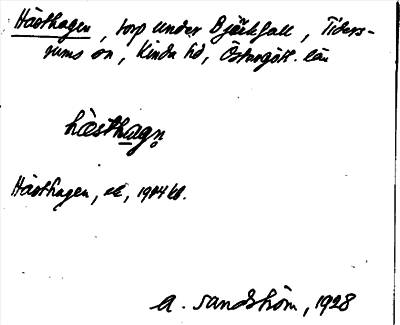 Hästhagen, torp under Björkfall, Tiders-
rums sn, Kinda hd, Östergötl. län
hàsthagn
Hästhagen, ek, 1904 kb.
A. Sandström, 1928